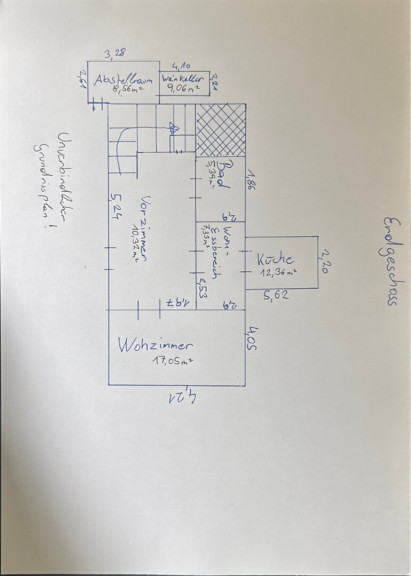 Erdgeschoss
3,28
Abstellraum
8,56m²
2,61
4,10
Weinkeller
9,06m²
2,21
Unverbindlicher
Grundrissplan!
5,24
Vorzimmer
10,32m²
1,97
Bad
5,39m²
1,86
2,9
Wohn-
Essbereich
7,33m²
2,53
2,9
Küche
12,36m²
2,20
5,62
Wohzimmer
17,05m²
4,05
4,21